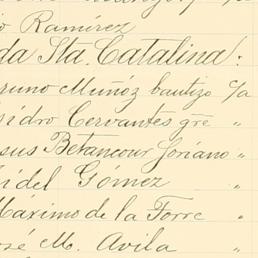 o Ramírez
da Sta. Catalina:
runo Muñóz bautizo c/a
sidro Cervantes gre "
sus Betancour Soriano "
idel Gómez "
Máximo de la Torre "
osé M. Avila "